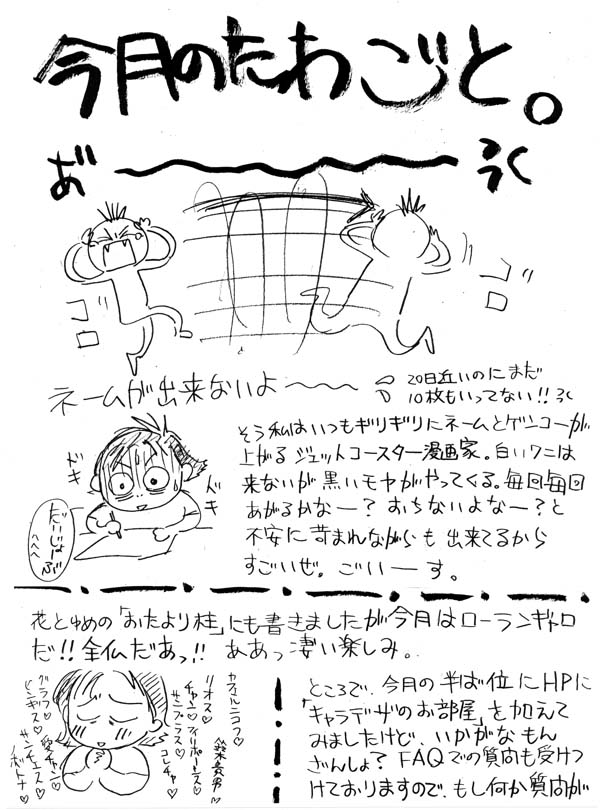 今月のたわごと。
お゛〜〜〜ろく
ゴロ゛
ゴロ゛
ネームが出来ないよ〜〜〜
20日近いのにまだ
10枚もいってない!!
そう私はいつもギリギリにネームとゲンコーが
上がるジェットコースター漫画家。白いワニは
来ないが黒いモヤがやってくる。毎回毎回
あがるかなー?おちないよなー?と
不安に苛まれながらも出来てるから
すごいぜ。ごいーす。
ドキ
ドキ
だいじょーぶ
へへへ
花とゆめの「おたより柱」にも書きましたが今月はローランギャロ
だ!!全仏だあっ!!ああっ凄い楽しみ。
カフェルニコフ♡
リオス♡
フィリポーシス♡
チャン♡
サンプラス♡
コレチャ♡
グラフ♡
ヒンギス♡
愛チャン♡
サンチェス♡
ノボトナ♡
ところで、今月の半ば位にHPに
「キャラデザのお部屋」を加えて
みましたけど、いかがなもん
ざんしょ?FAQでの質問も受けつ
けておりますので、もし何か質問が